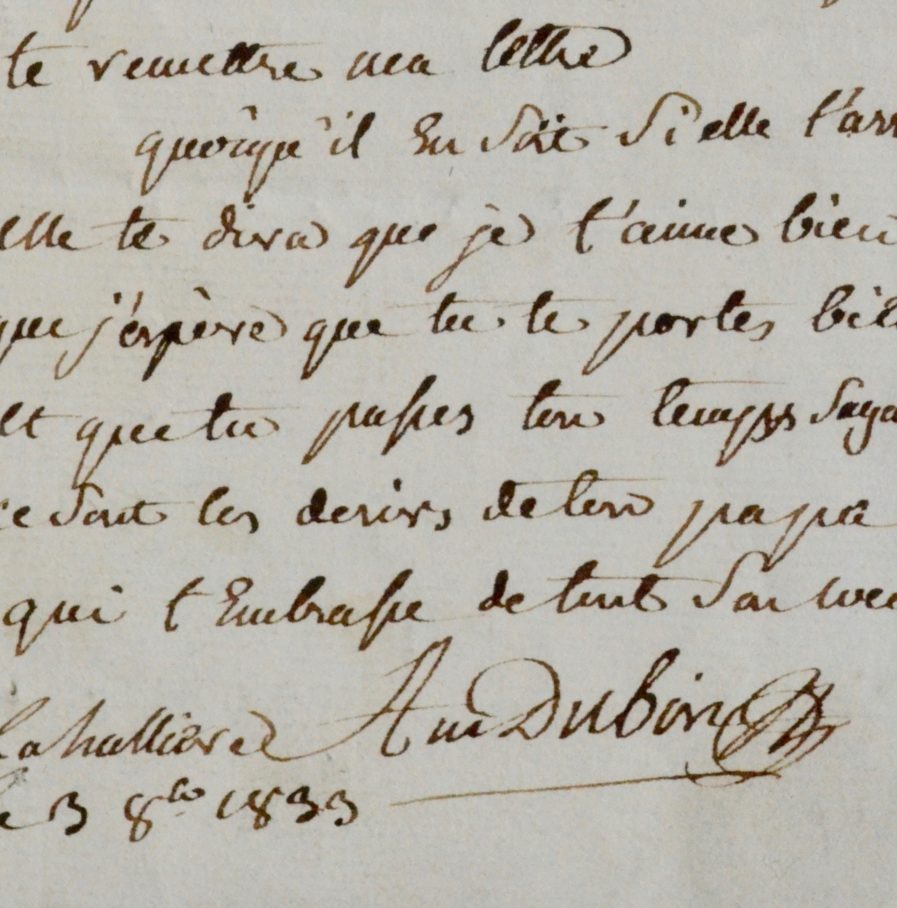 te remettre ma lettre
quoiqu'il En Soit Si elle t'arr
elle te dira que je t'aime bien
que j'espère que tu te portes bien
et que tu passes ton temps Saga
ce Sont les desirs de ton papa
qui t'Embrasse de tout Son coeu
Am DuBois
le 3 8bre 1833